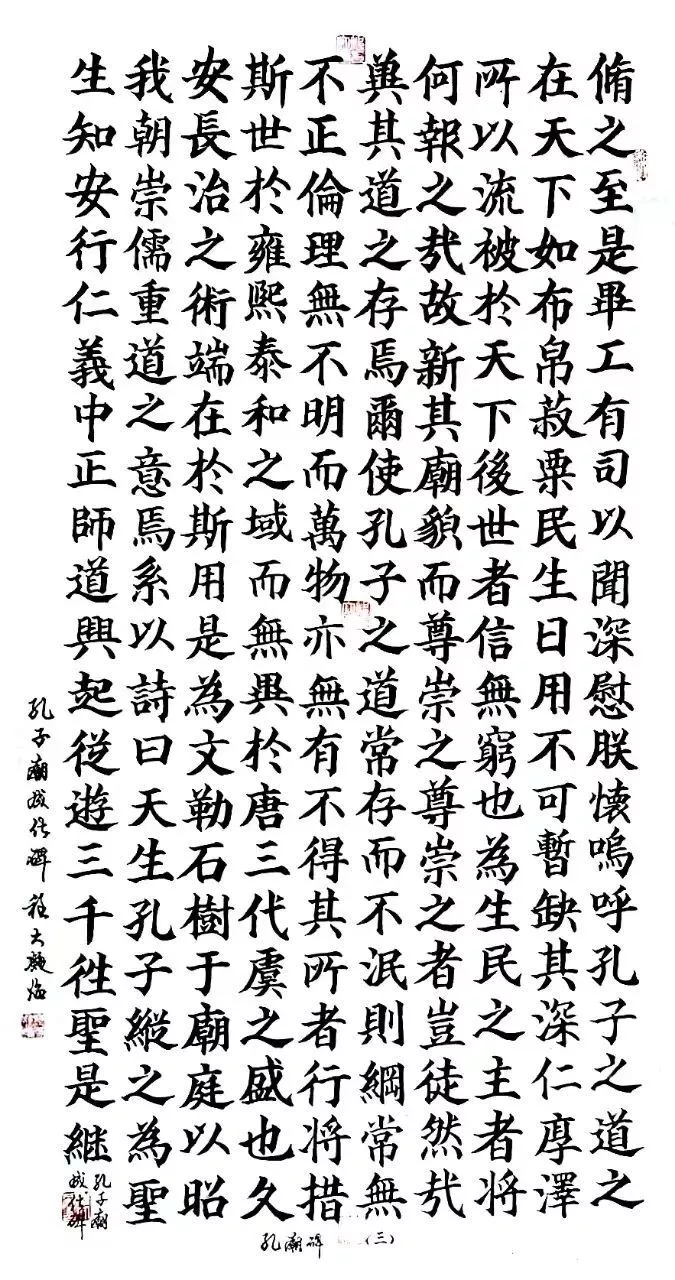 脩之至是畢工有司以聞深慰朕懷嗚呼孔子之道之
在天下如布帛菽粟民生日用不可暫缺其深仁厚澤
所以流被於天下後世者信無窮也為生民之主者将
何報之哉故新其廟貌而尊崇之尊崇之者豈徒然哉
冀其道之存焉爾使孔子之道常存而不泯則綱常無
不正倫理無不明而萬物亦無有不得其所者行将措
斯世於雍熙泰和之域而無異於唐三代虞之盛也久
安長治之術端在於斯用是為文勒石樹于廟庭以昭
我朝崇儒重道之意焉系以詩曰天生孔子縱之為聖
生知安行仁義中正師道興起從遊三千徃聖是継
孔子廟成化碑
孔子廟
成化碑
孔廟碑 (三)